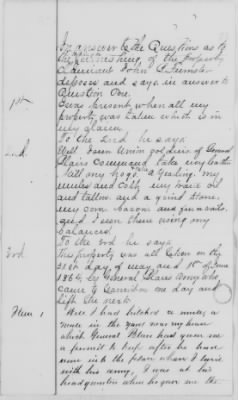 In answer to the Question as to
the furnishing of the property
Claimant John
deposes and says in answer to
Question One.
1st I was present when all my
property was taken which is in
my claim
2nd To the 2nd he says
Well I seen Union soldiers of General
Blairs Command take my
all my hogs, a yearling, my
mules and colt, my
and tallow, and a grind stone,
my corn bacon and
and I seen them using my
3rd To the 3rd he says
This property was all taken on the
31st day of May and 1st of June
1864, by General Blairs Army who
came to one day and
left the next.
Item 1 Well I had hitched a mule, a
mule in the yard near my house
which General Blair had given me
a permit to keep after he had
me in the place where I lived
with his army, I was at his
headquarters when he gave me the